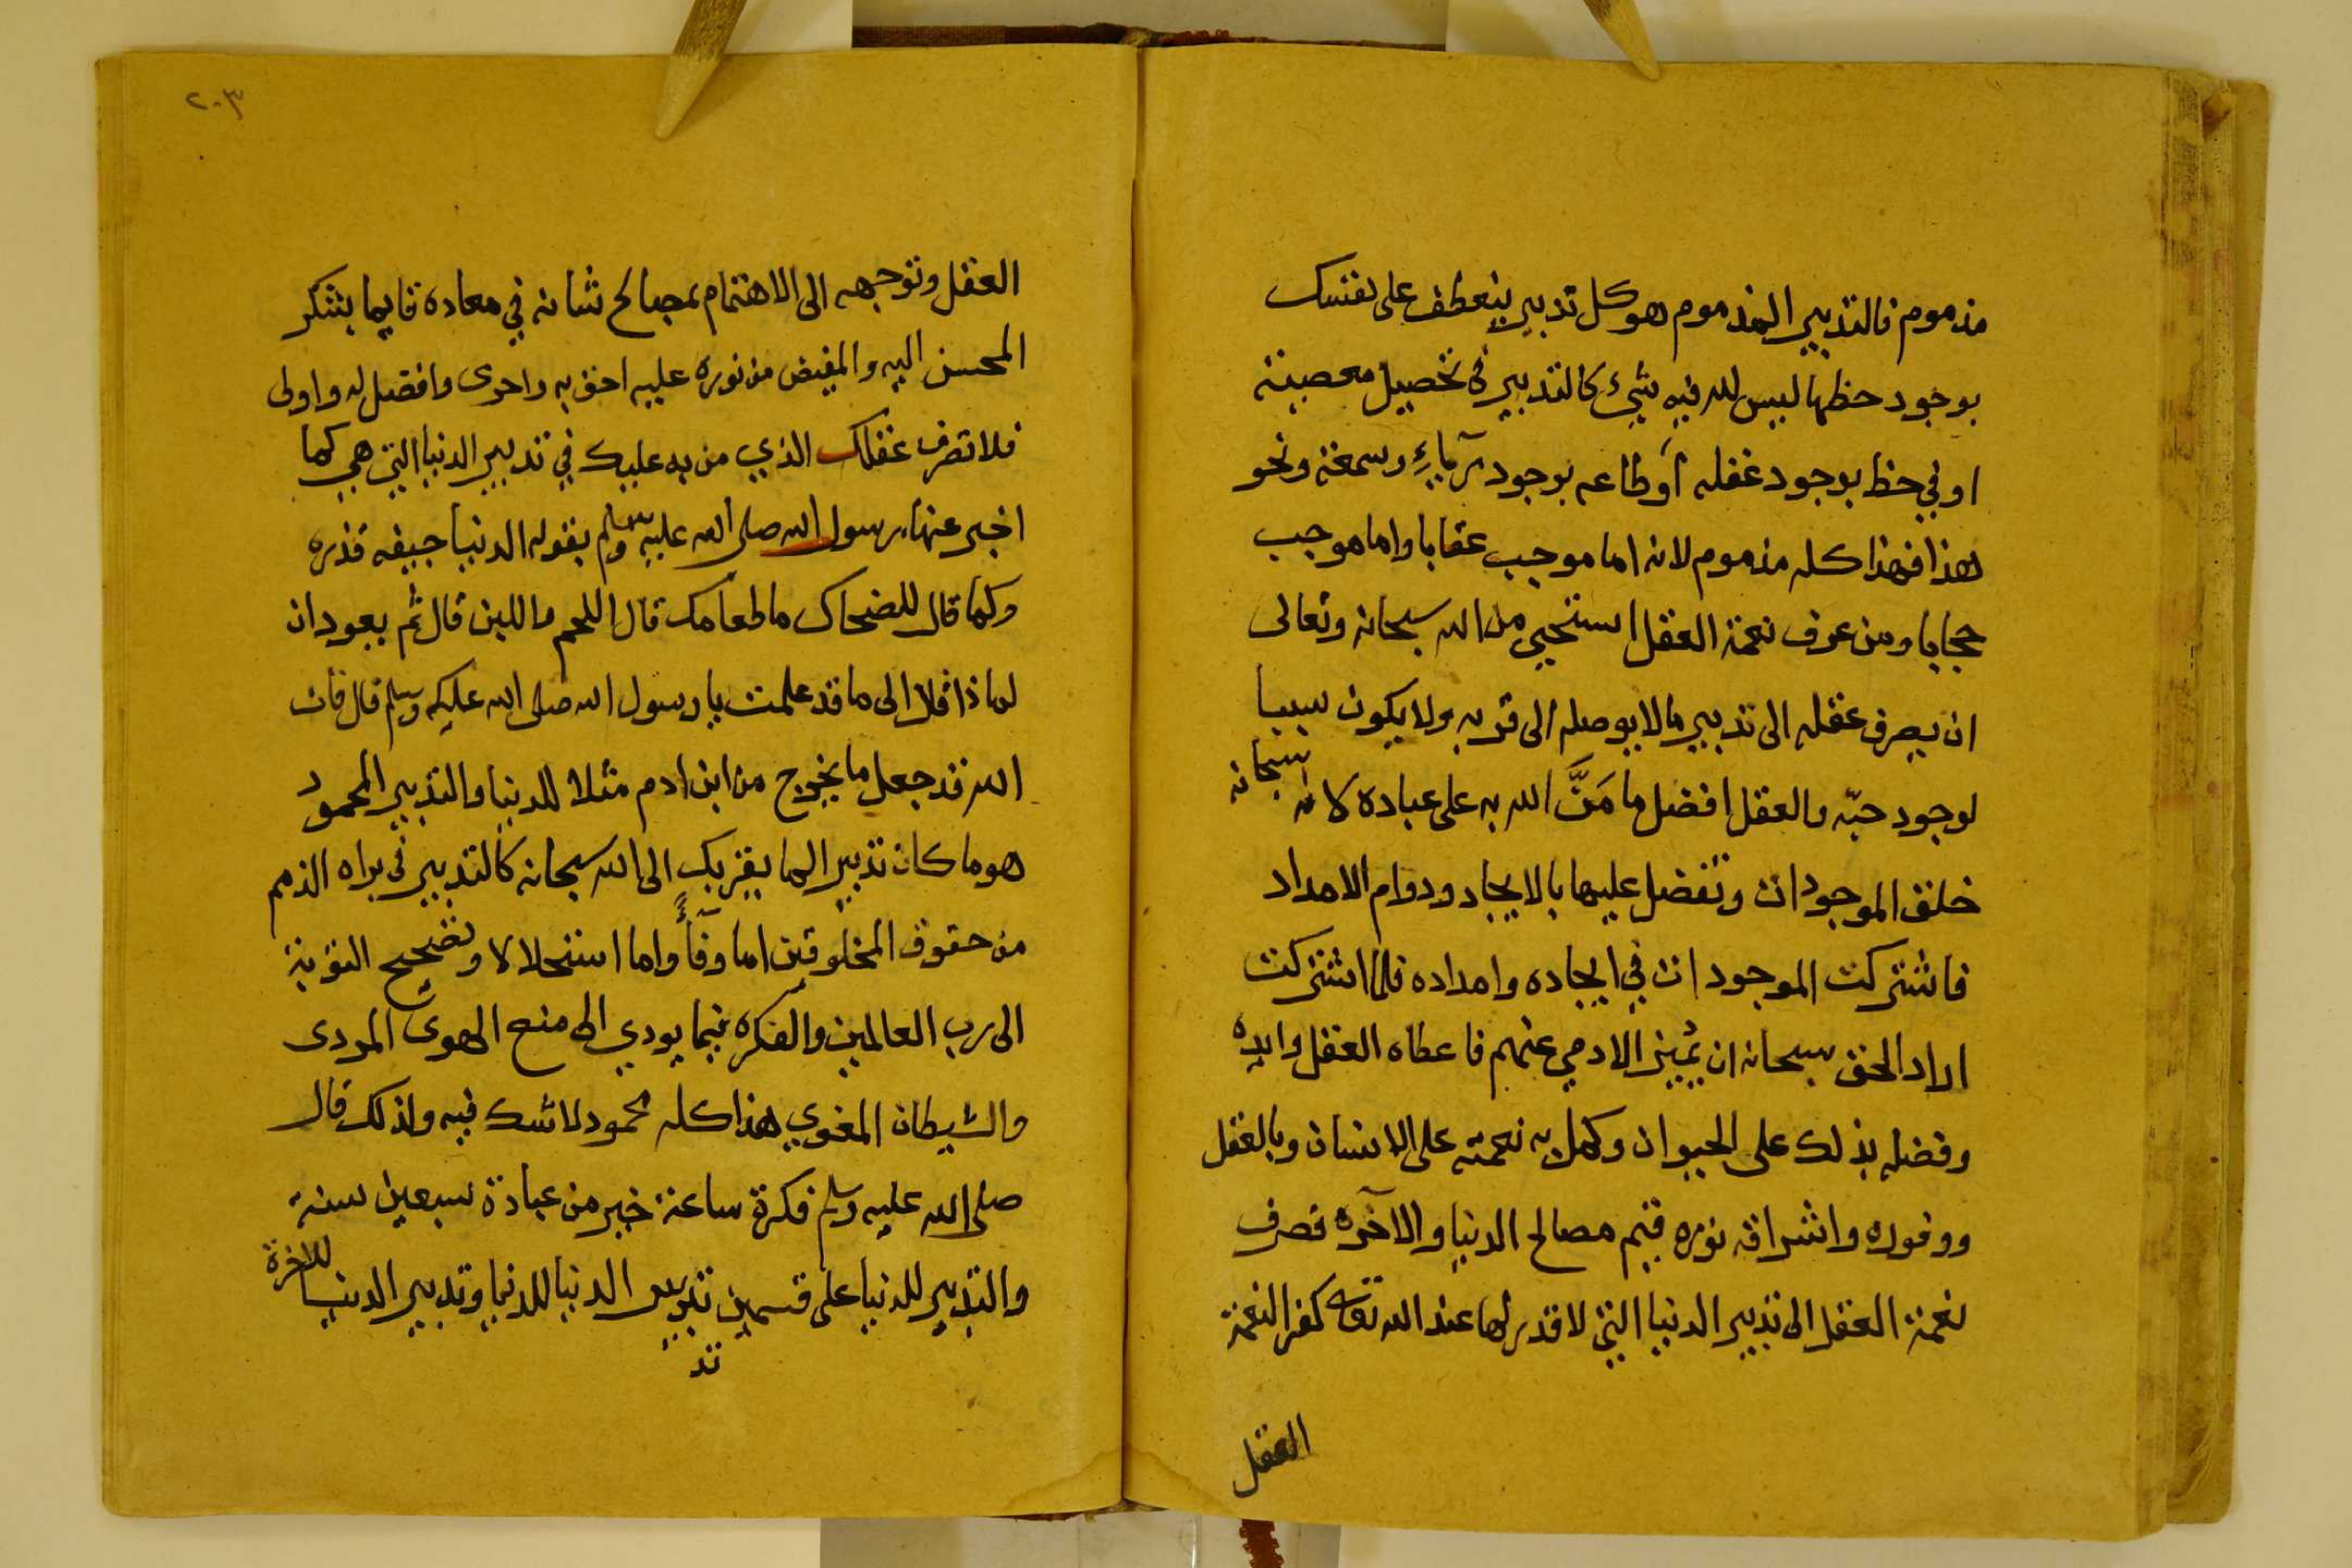 مذموم فالتدبير المذموم هو كل تدبير ينعطف على نفسك
بوجود حظها ليس لله فيه شيء كالتدبير في تحصيل معصية
او في حظ بوجود غفله أو طاعه بوجود رياء وسمعة ونحو
هذا فهذا كله مذموم لانه اما موجب عقابا واما موجب
حجابا ومن عرف نعمة العقل استحيى من الله سبحانه وتعالى
ان يصرف عقله الى تدبير مالا يوصله الى قربه ولا يكون سببا
لوجود حبّه والعقل افضل ما مَنَّ الله به على عباده لانه سبحانه
خلق الموجودات وتفضل عليها بالايجاد ودوام الامداد
فاشتركت الموجودات في ايجاده وامداده فلما اشتركت
اراد الحق سبحانه ان يميز الادمي عنهم فاعطاه العقل وايده
وفضله بذلك على الحيوان وكمل به نعمته على الانسان وبالعقل
ووفوره واشراقه نوره فتم مصالح الدنيا والآخره فصرف
نعمة العقل الى تدبير الدنيا التي لا قدر لها عند الله تعا كفر النعمة
العقل
٢٠٣
العقل وتوجهه الى الاهتمام بمصالح شانه في معاده قايما بشكر
المحسن اليه والمفيض من نوره عليه احق به واحرى وافضل له واولى
فلا تصرف عقلك الذي من به عليك في تدبير الدنيا التي هي كما
اخبر عنها رسول الله صلى الله عليه وسلم بقوله الدنيا جيفه قذره
وكما قال للضحاك ما طعامك قال اللحم واللبن قال ثم يعود ان
لماذا قال الى ما قد علمت يا رسول الله صلى الله عليه وسلم قال فان
الله قد جعل ما يخرج من ابن ادم مثلا للدنيا والتدبير المحمود
هو ما كان تدبير الما يقربك الى الله سبحانه كالتدبير في براه الذمم
من حقوق المخلوقين اما وفآءً واما استحلالا وتصحيح التوبة
الى رب العالمين والفكره فيما يودي الى منع الهوى المردى
والشيطان المغوي هذا كله محمود لاشك فيه ولذلك قال
صلى الله عليه وسلم فكرة ساعة خير من عبادة سبعين سنة
والتدبير للدنيا على قسمين تدبير الدنيا للدنيا وتدبير الدنيا للاخرة
تد